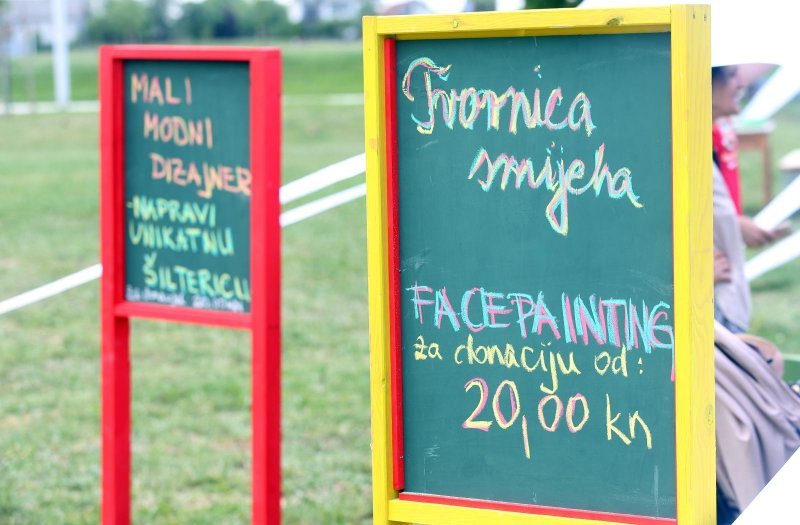 MALI
MODNI
DIZAJNER
-NAPRAVI
UNIKATNU
ŠILTERICU
Tvornica
smijeha
FACEPAINTING
za donaciju od:
20,00 kn